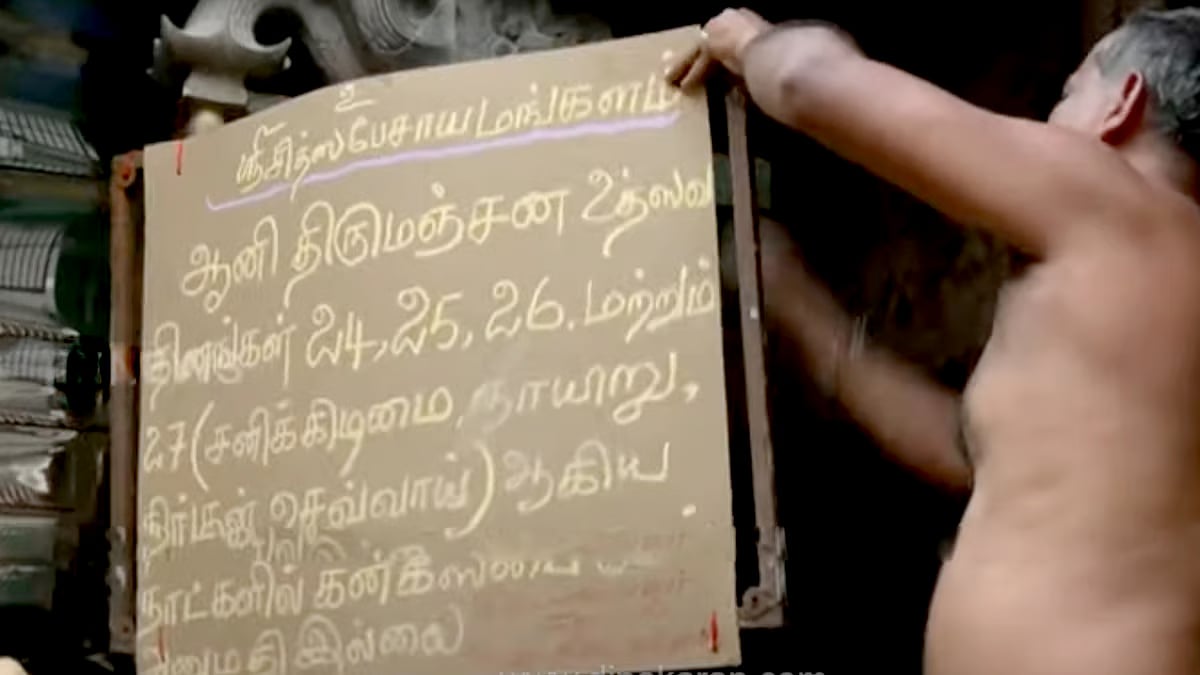 உ
ஸ்ரீசித்ஸபேசாய மங்களம்
ஆனி திருமஞ்சன உத்ஸவ
தினங்கள் 24, 25, 26. மற்றும்
27 (சனிக்கிடிமை, நாயிறு,
திங்கள் செவ்வாய்) ஆகிய
நாட்களில் கனகஸபை
அனுமதி இல்லை